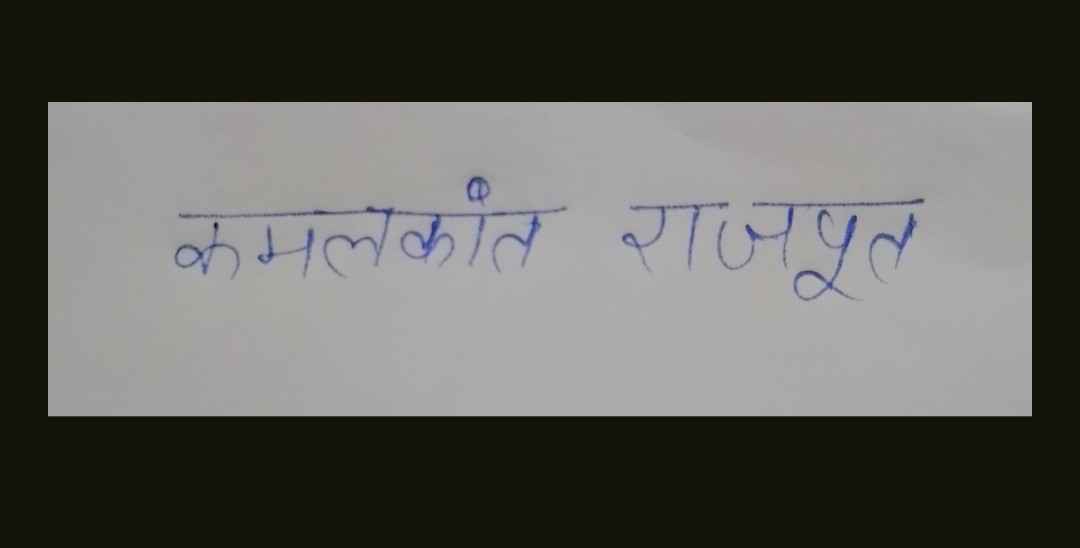 कमलकांत राजपूत